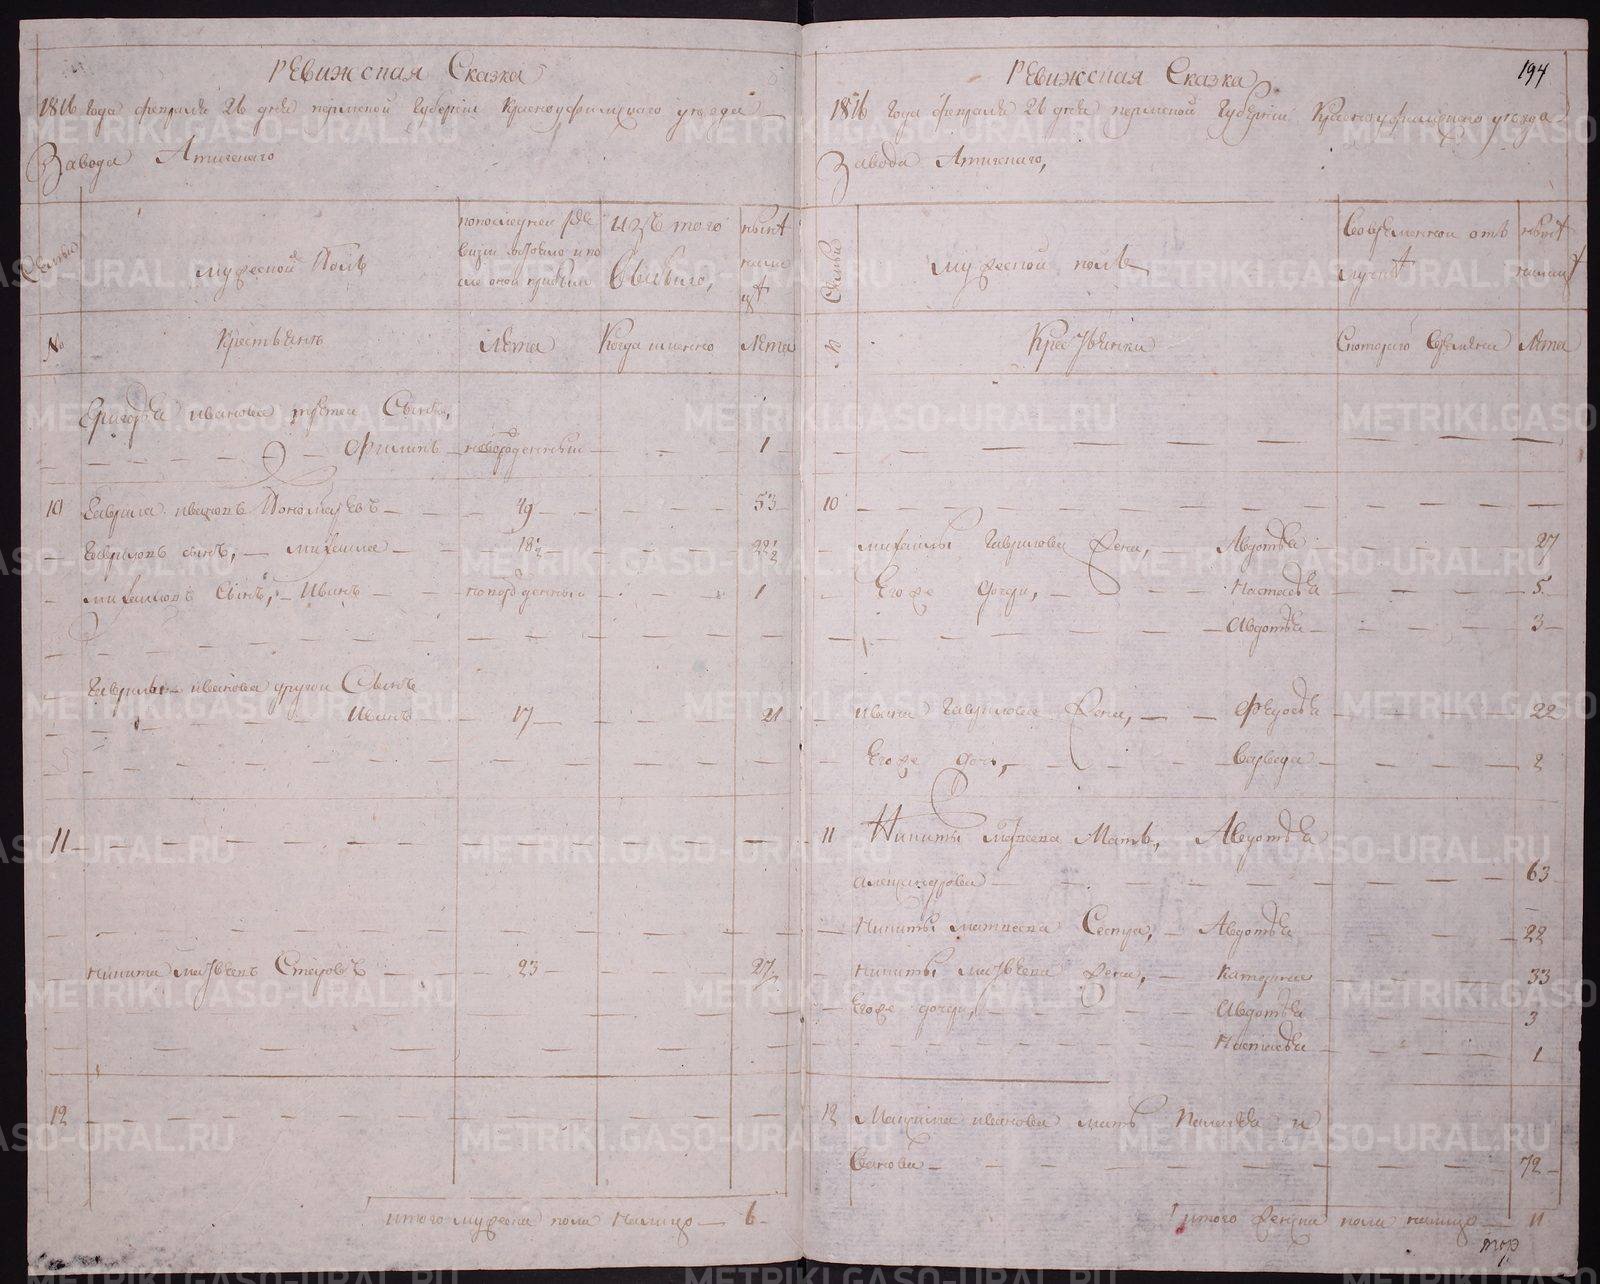 Ревижская Сказка
1816 Года февраля 26 дня пермской Губернии Красноуфимскаго уезда
Завода Атигскаго
Семьи
мужеской Полъ
попоследней ре
визии состояло и по
сле оной прибыло
Изъ того
Выбыло,
ныне
нали
цѣ
№
Крестьянъ
Лета
Когда имянно
Лета
Григорья иванова третей Сынъ,
Филипъ новорожденный 1
10 Гаврила ивановъ Пономаревъ 49 53
Гавриловъ сынъ, михаила 18½ 22½
михаиловъ Сынъ, Иванъ новорожденный 1
Гаврилы иванова другой Сынъ
Иванъ 17 21
11
никита матвеевъ Старовъ 23 27
12
итого мужеска пола налицо 6
Ревижская Сказка
194
1816 Года февраля 26 дня пермской Губернии Красноуфимскаго уезда
Завода Атигскаго,
Семьи
мужеской полъ
Вовременной отъ
лучкѣ
ныне
налицѣ
№
Крестьянки
Скотораго Времяни
Лета
10
михаилы Гаврилова жена, Авдотья 27
Егоже дочери, Настасья 5
Авдотья 3
ивана Гаврилова жена, Федосья 22
Егоже дочь, Варвара 2
11 Никиты матвеева Мать, Авдотья
Александрова 63
никиты матвеева Сестра, Авдотья 22
никиты матвеева жена, катерина 33
Егоже дочери, Авдотья 3
Настасья 1
12 Максима иванова мать Палагея и
Ванова 72
итого женска пола налицо 11
METRIKI.GASO-URAL.RU